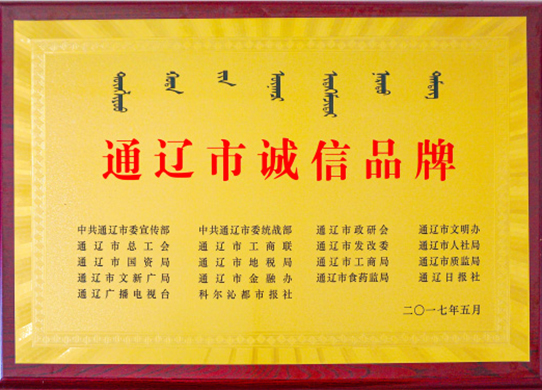 通辽市诚信品牌
中共通辽市委宣传部 中共通辽市委统战部 通辽市政研会 通辽市文明办
通辽市总工会 通辽市工商联 通辽市发改委 通辽市人社局
通辽市国资局 通辽市地税局 通辽市工商局 通辽市质监局
通辽市文新广局 通辽市金融办 通辽市食药监局 通辽日报社
通辽广播电视台 科尔沁都市报社
二〇一七年五月